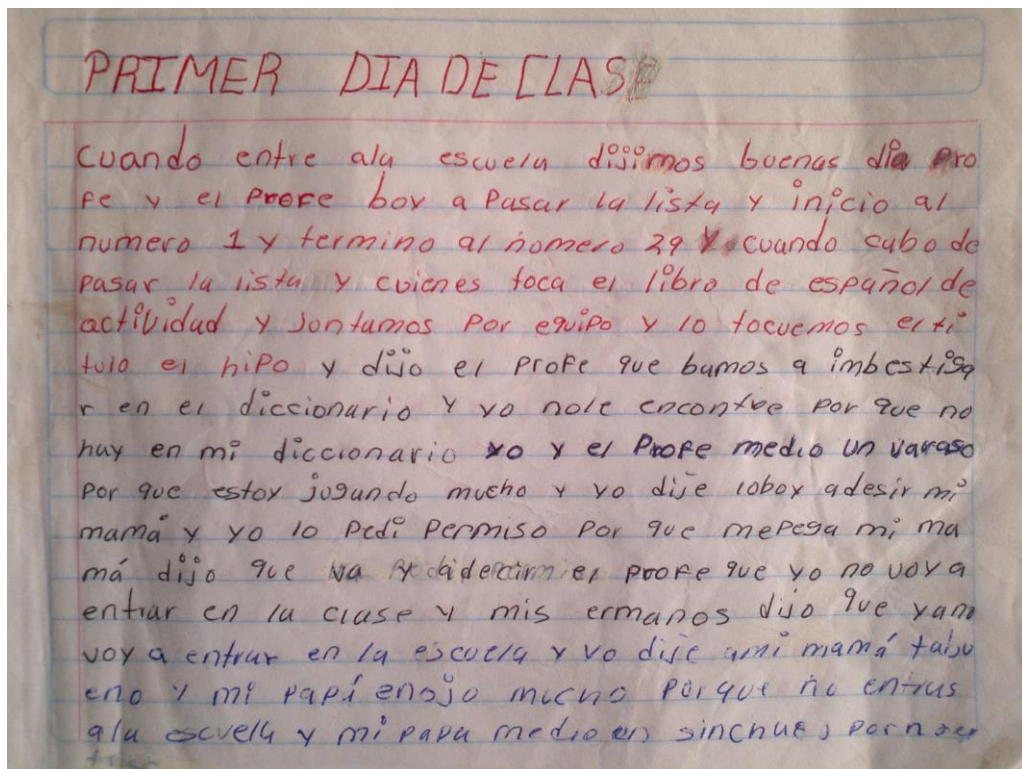 PRIMER DIA DE CLASE
Cuando entre ala escuela dijimos buenas dia pro
fe y el Profe boy a Pasar la lista y inicio al
numero 1 y termino al nomero 29 y cuando cabo de
pasar la lista y cuienes toca el libro de español de
actividad y Jontamos Por equipo y lo tocuemos el ti
tulo el hipo y dijo el Profe que bamos a imbestiga
r en el diccionario y yo nole encontre por que no
hay en mi diccionario yo y el Profe medio un varaso
Por que estoy jugando mucho y yo dije loboy adesir mi
mamá y yo lo Pedi Permiso Por que mepega mi ma
má dijo que va el profe que yo no voy a
entrar en la clase y mis ermanos dijo que yano
voy a entrar en la escuela y yo dije ami mamá
eno y mi papí enojo mucho porque no entras
ala escuela y mi papa